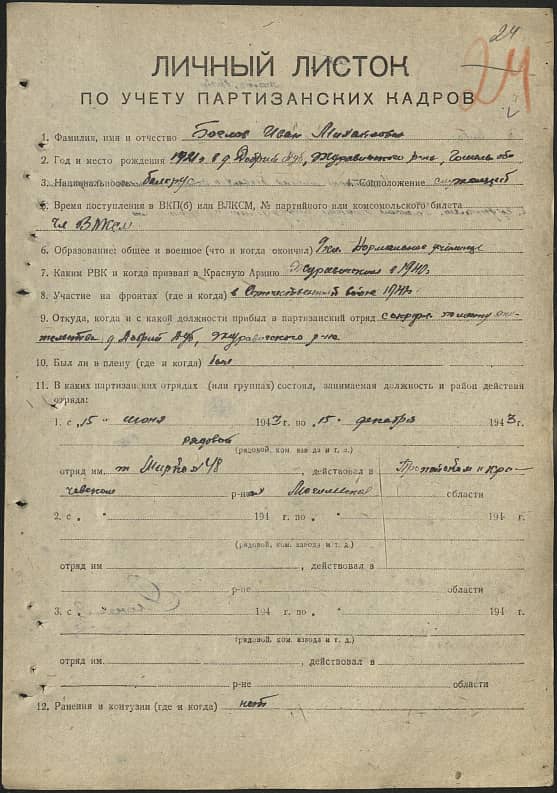 24
24
ЛИЧНЫЙ ЛИСТОК
ПО УЧЕТУ ПАРТИЗАНСКИХ КАДРОВ
1. Фамилия, имя и отчество Иван Михайлович
2. Год и место рождения 1921 г. в д. Добрый Дуб, Журавичского р-на, Гомель обл
3. Национальность белорус 4. Соцположение служащий
5. Время поступления в ВКП(б) или ВЛКСМ, № партийного или комсомольского билета
чл ВЛКСМ
6. Образование: общее и военное (что и когда окончил) училище
7. Каким РВК и когда призван в Красную Армию Журавичским в 1940г
8. Участие на фронтах (где и когда) в Отечественной войне
9. Откуда, когда и с какой должности прибыл в партизанский отряд с
д. Добрый Дуб, Журавичского р-на
10. Был ли в плену (где и когда) был
11. В каких партизанских отрядах (или группах) состоял, занимаемая должность и район действия
отряда:
1. с „15 " июня 1943 г. по „15 " декабря 1943 г.
рядовой
(рядовой, ком. взвода и т. д.)
отряд им. 48 , действовал в Пропойском и Кри-
чевском р-нах Могилевской области
2. с „ " 194 г. по „ " 194 г.
(рядовой, ком. взвода и т. д.)
отряд им. , действовал в
р-не области
3. с „ " 194 г. по „ " 194 г.
(рядовой, ком. взвода и т. д.)
отряд им. , действовал в
р-не области
12. Ранения и контузии (где и когда) нет